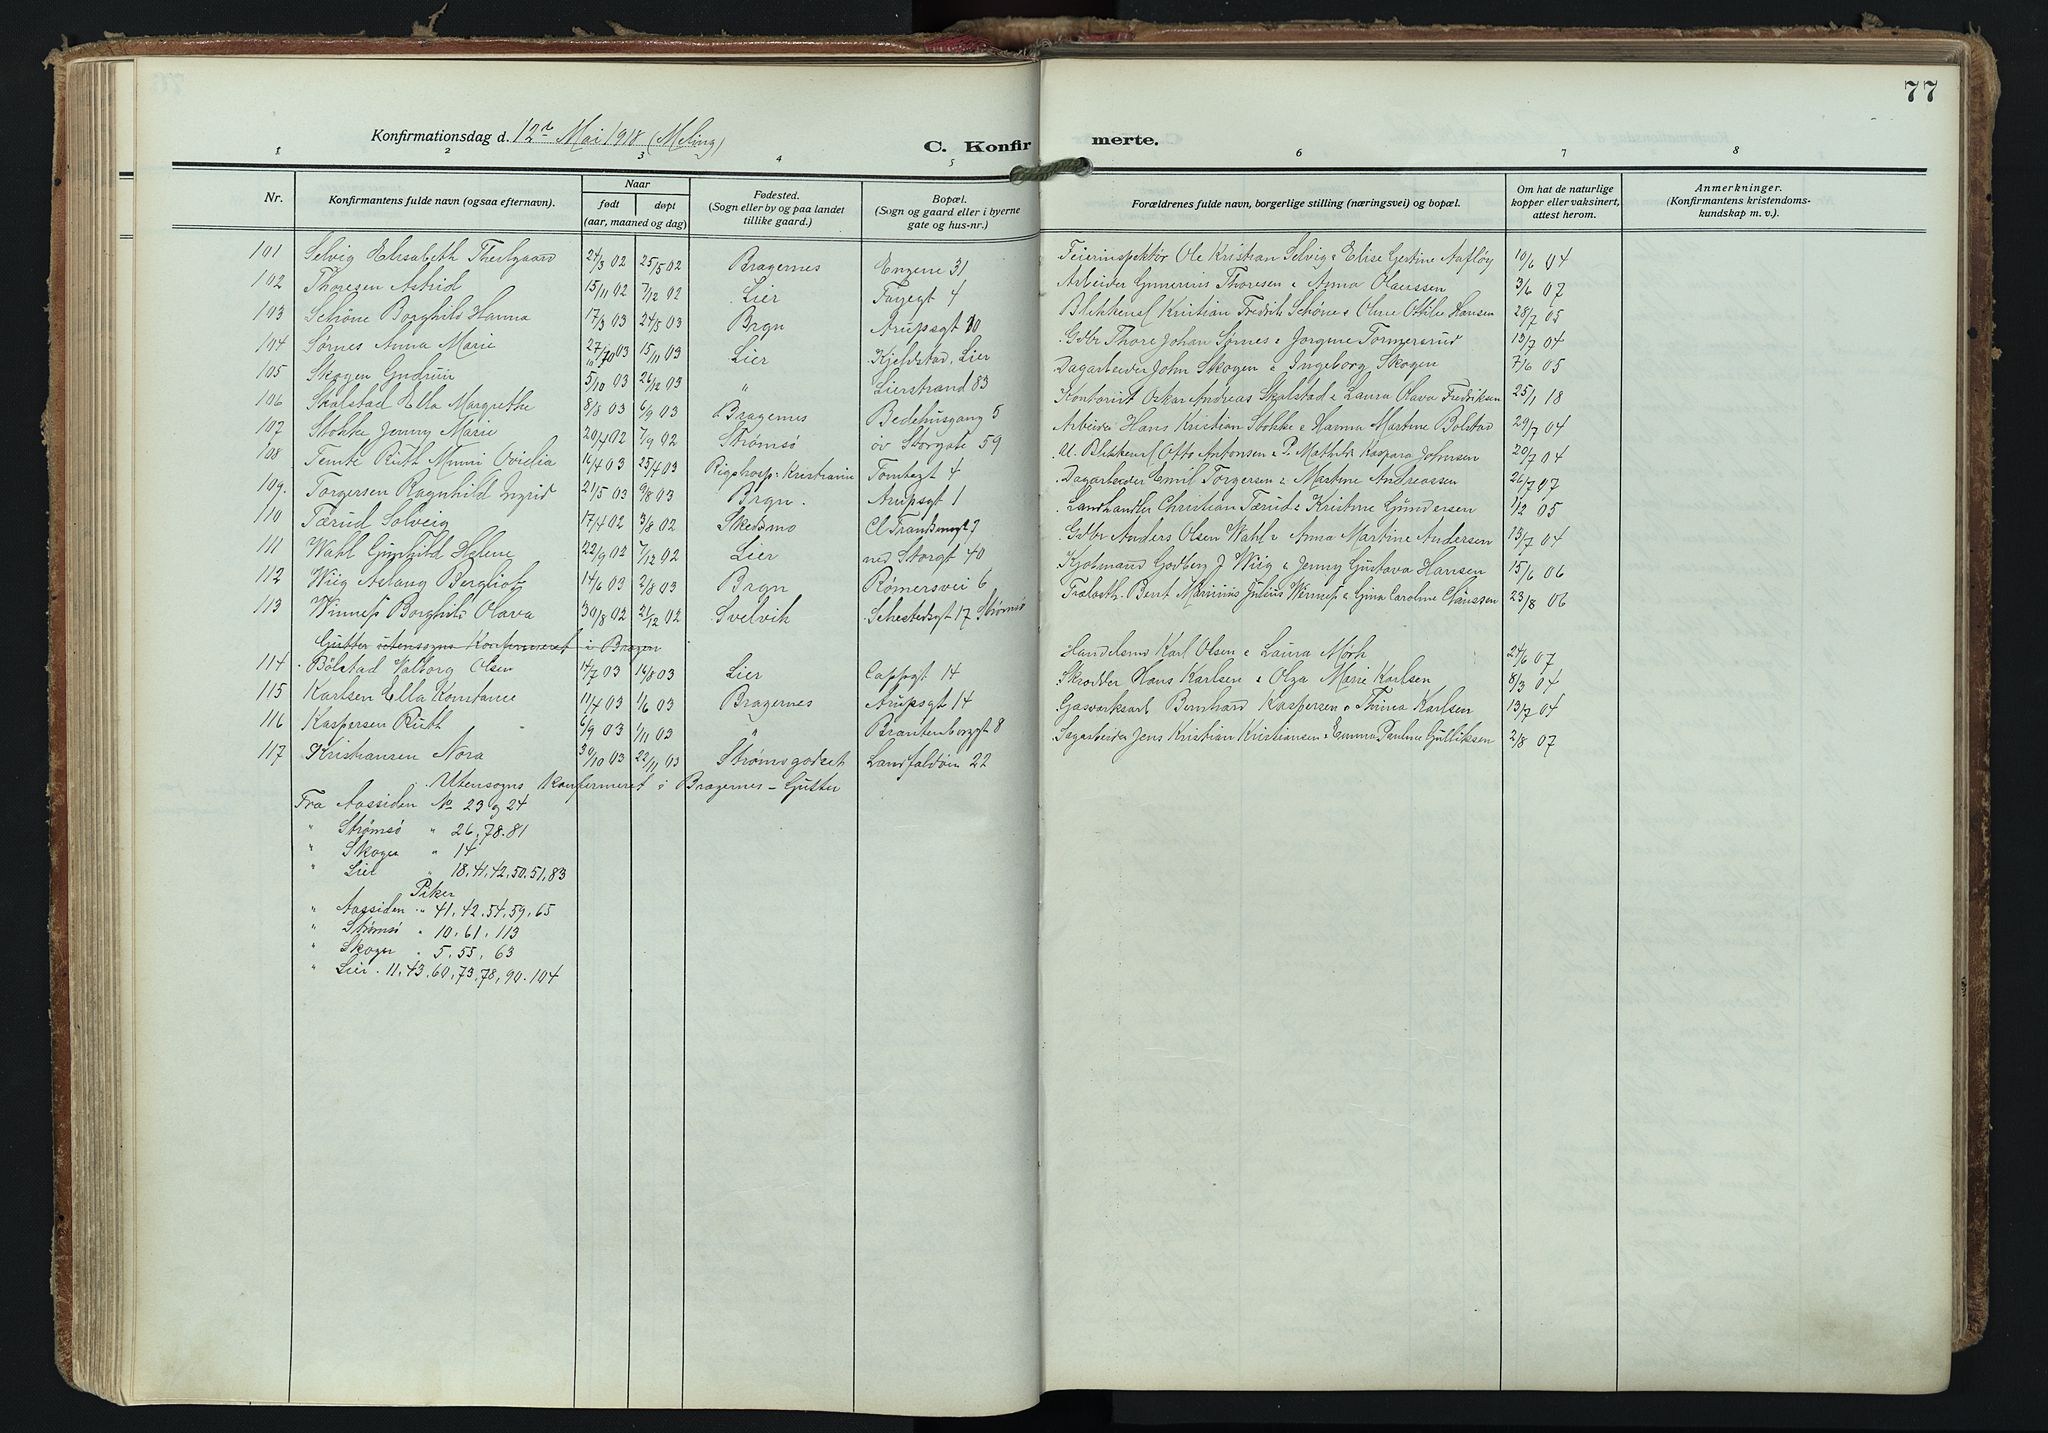 77
Konfirmationsdag d. 12te Mai 1918 (Meling)
C. Konfirmerte.
1 2 3 4 5 6 7 8
Nr. Konfirmantens fulde navn (ogsaa efternavn). Naar født døpt (aar, maaned og dag) Fødested. (Sogn eller by og paa landet tillike gaard.) Bopæl. (Sogn og gaard eller i byerne gate og hus-nr.) Forældrenes fulde navn, borgerlige stilling (næringsvei) og bopæl. Om hat de naturlige kopper eller vaksinert, attest herom. Anmerkninger. (Konfirmantens kristendoms-kundskap m. v.).
101 Selvig Elisabeth 24/3 02 25/5 02 Bragernes Engene 31 Feierinspektør Ole Kristian Selvig & Elise Gertine Aafløy 10/6 04
102 Thoresen Astrid 15/11 02 7/12 02 Lier Tagegt 4 Arbeider Gunerius Thoresen & Anna Claussen 3/6 07
103 Schöne Borghild Hanna 17/3 03 24/5 03 Brgn Arupsgt 10 Blikkensl Kristian Fredrik Schöne & Oline Ottilie Hansen 28/7 05
104 Sørnes Anna Marie 27/10 03 15/11 03 Lier Kjeldstad, Lier Gdbr Thore Johan Sørnes & Jorgine Tormersrud 13/7 04
105 Skogen Gudrun 5/10 03 26/12 03 " Lierstrand 83 Dagarbeider John Skogen & Ingeborg Skogen 7/6 05
106 Skalstad Ella Margrethe 8/8 03 6/9 03 Bragernes Bedehusgang 5 Kontorist Oskar Andreas Skalstad & Laura Olava Fredriksen 25/1 18
107 Stokke Jenny Marie 20/4 02 7/9 02 Strømsø öv Storgate 59 Arbeider Hans Kristian Stokke & Hanna Martine Bolstad 29/7 04
108 Temte Ruth Minni Ovidia 16/4 03 25/4 03 Rigshosp. Kristiania Tomtegt 4 U. Blikkensl Otto Antonsen & P. Mathilde Kaspara Johnsen 20/7 04
109. Torgersen Ragnhild Ingrid 21/5 03 9/8 03 Brgn. Arupsgt 1 Dagarbeider Emil Torgersen & Martine Andreassen 26/7 07
110 Tærud Solveig 17/4 02 3/8 02 Skedsmo Cl Franksensgt 7 Landhandler Christian Tærud & Kristine Gundersen 1/12 05
111 Wahl Gunhild Helene 22/9 02 7/12 02 Lier ned Storgt 40 Gdbr Anders Olsen Wahl & Anna Martine Andersen 13/7 04
112 Wiig Aslaug Bergliot 14/6 03 2/8 03 Brgn Rømersvei 6 Kjøbmand Godberg J Wiig & Jenny Gustava Hansen 15/6 06
113 Winnesz Borghild Olava 30/8 02 21/12 02 Svelvik Schestedsgt 17 Strømsø Trælasth. Bent Marinius Julius Winnesz & Gina Caroline Clausen 23/8 06
Gutter utensogns Konfirmeret i Bragen
114 Bölstad Valborg Olsen 14/7 03 14/8 03 Lier Cappsgt 14 Handelsmd Karl Olsen & Laura Mørk 24/6 07
115 Karlsen Ella Konstance 11/4 03 1/6 03 Bragernes Arupsgt 14 Skrædder Hans Karlsen & Olga Marie Karlsen 8/3 04
116 Kaspersen Ruth 6/9 03 1/11 03 " Brantenborggt 8 Gasværksarb Bernhard Kaspersen & Thina Karlsen 13/7 04
117 Kristiansen Nora 30/10 03 22/11 03 Strømsgodset Landfaldöien 22 Sagarbeider Jens Kristian Kristiansen & Emma Pauline Gulliksen 2/8 07
Utensogns Konfirmeret i Bragernes - Gutter
Fra Aassiden No 23 og 24
" Strømsø " 26, 78. 81
" Skoger " 14
" Lier " 18, 41, 42, 50, 51, 83
Piker
" Aassiden " 41, 42. 54, 59, 65
" Strømsø " 10, 61, 113
" Skoger " 5, 55, 63
" Lier. 11, 43, 60, 73, 78, 90. 104